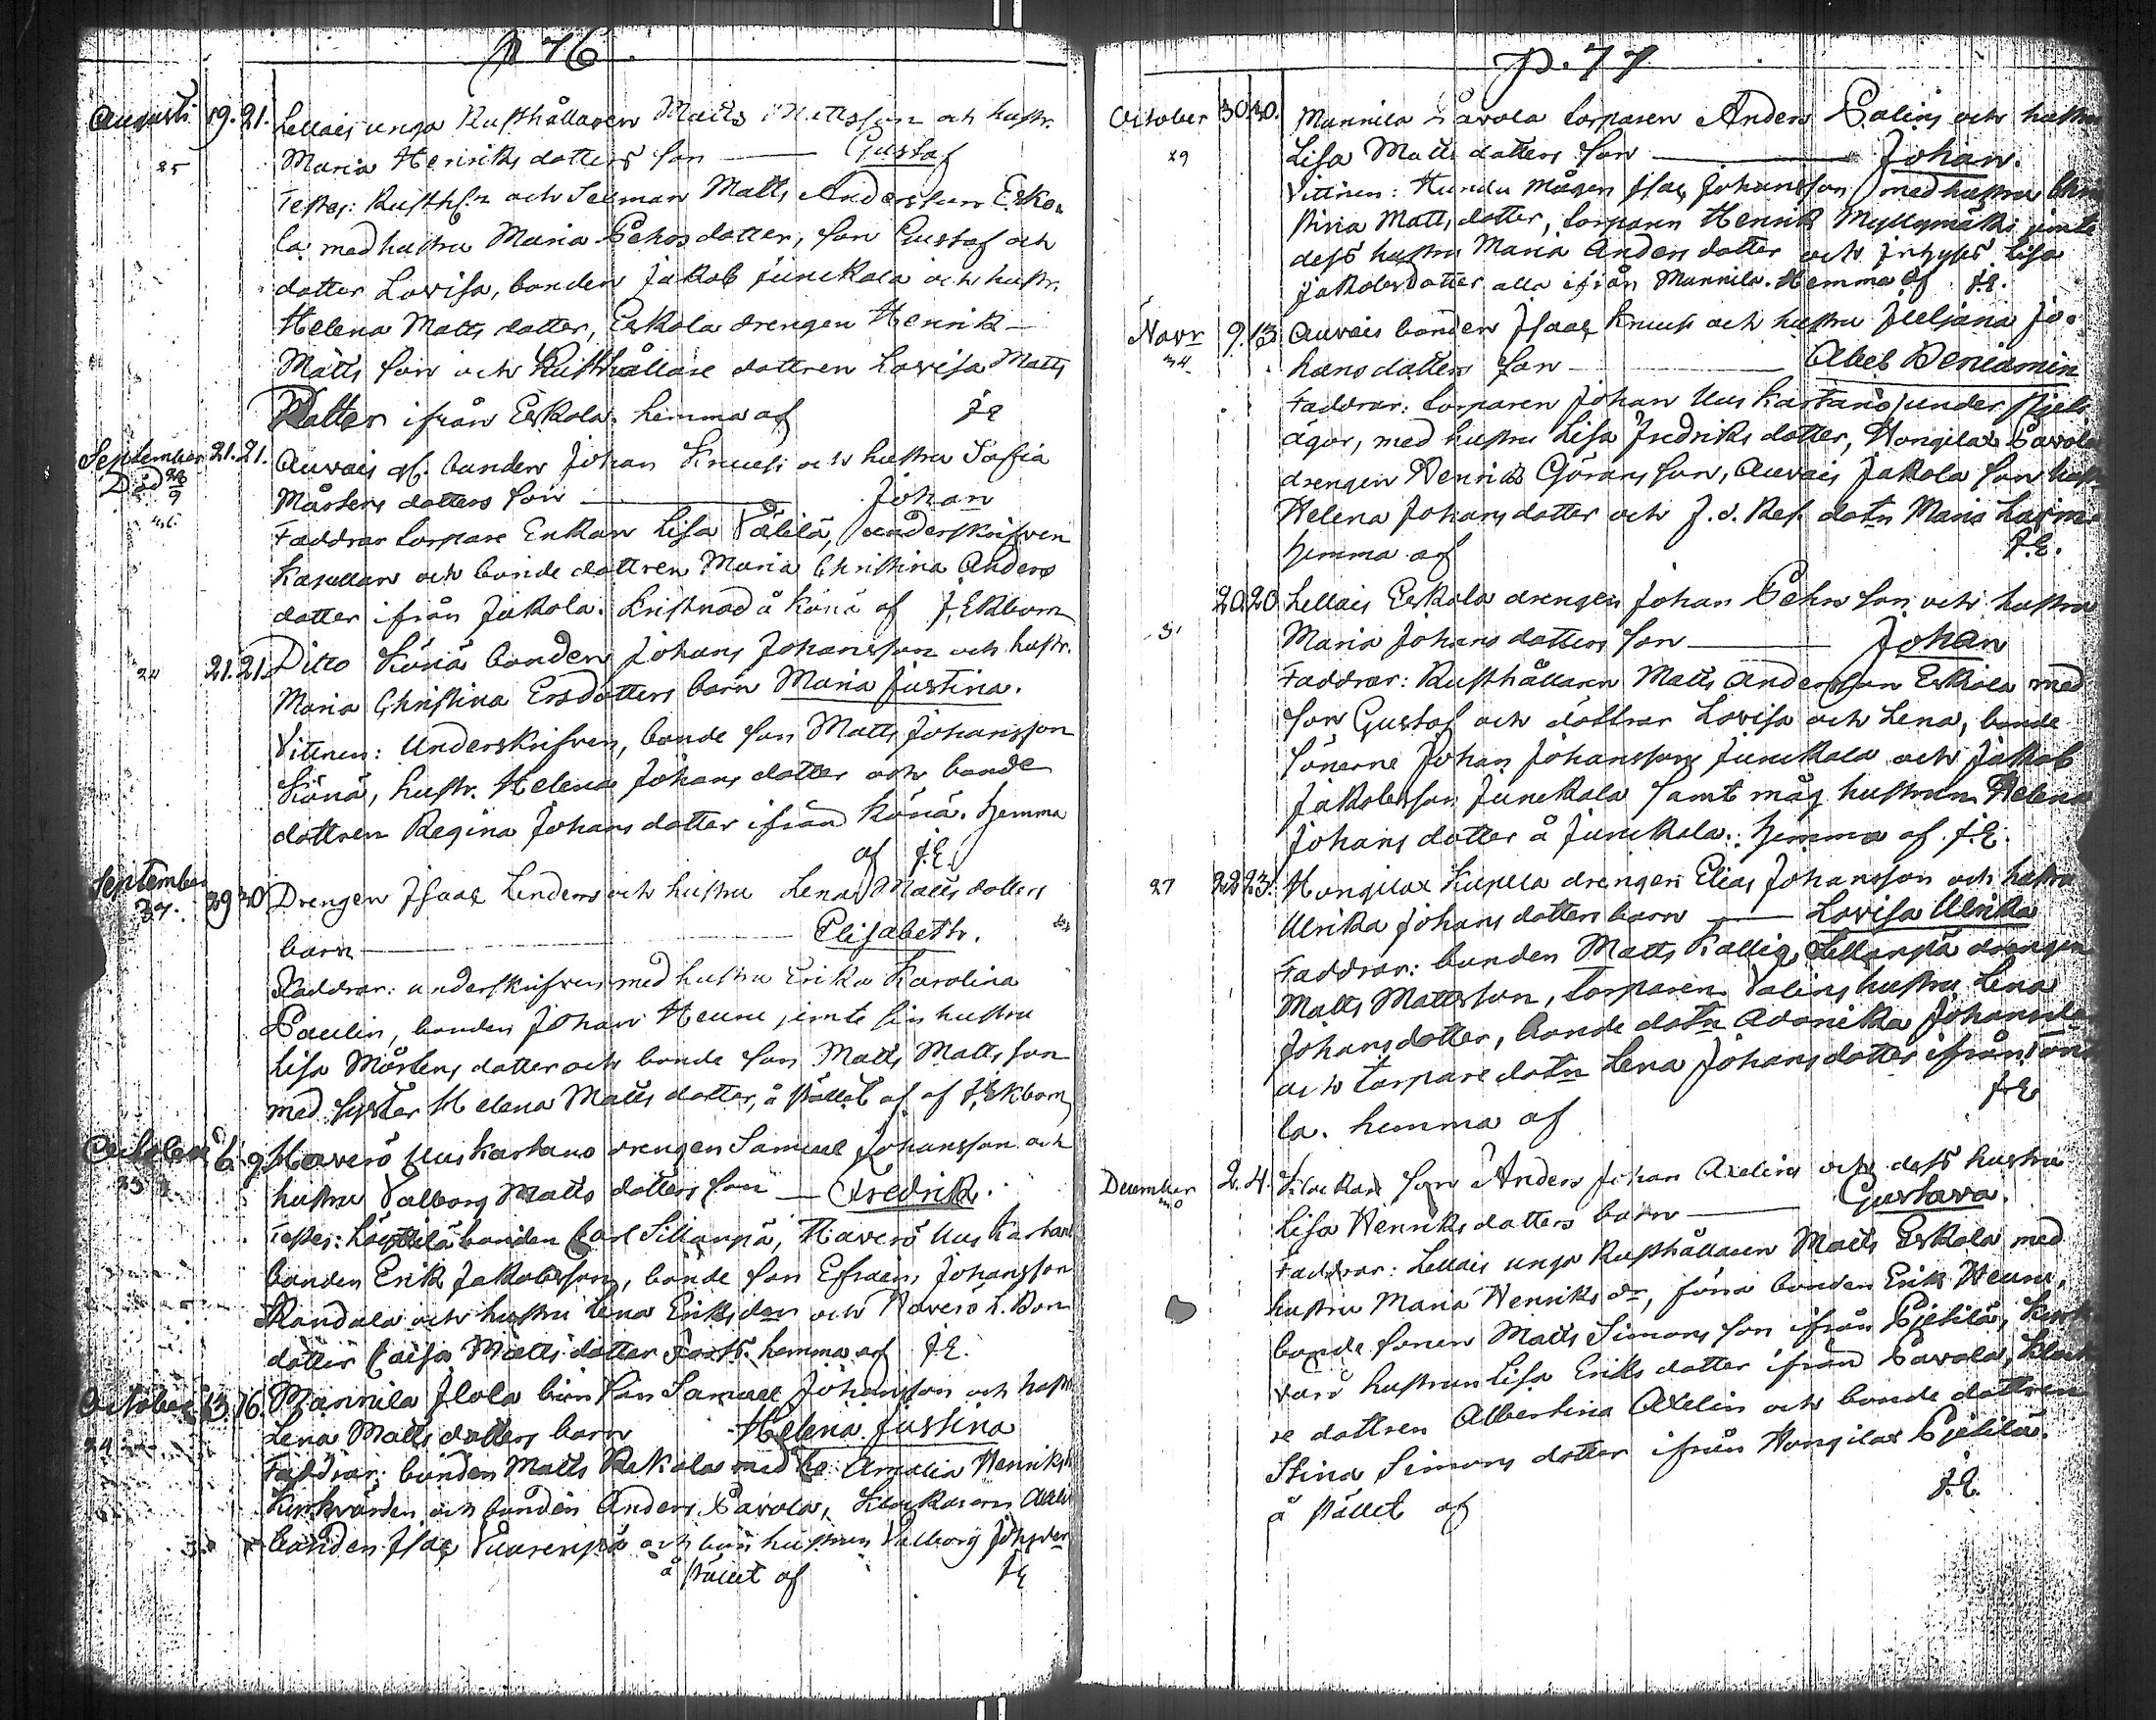 p 76.
Augusti 19. 21. Lellais unga Rusthållaren Matts Mattsson och hustr.
25 Maria Henriks dotters son — Gustaf
Testes: Rusth:n och Sexman Matts Andersson Esko-
la med hustru Maria Pehrsdotter, son Gustaf och
dotter Lovisa, bonden Jakob Junckala och hustr.
Helena Matts dotter, Eskola drengen Henrik
Matts son och Rusthållare dottren Lovisa Matts
Dotter ifrån Eskola. hemma af J.E
September 21. 21. Auvais bonden Johan Knuuti och hustru Sofia
Död 28/9 Mårtens dotters son — Johan
Faddrar torpare Enkan Lisa Välilä, underskrifven
Kapellan och bonde dottren Maria Christina Anders
dotter ifrån Jakola. Kristnad å Könä af J. Ekbom
24 21. 21. Ditto Könä bonden Johans Johansson och hustr.
Maria Christina Ersdotters barn Maria Justina.
Vittnen: Underskrifven, bonde son Matts Johansson
Könä, hustr. Helena Johans dotter och bonde
dottren Regina Johans dotter ifrån Könä. Hemma
af J.E.
September 29 30 Drengen Isaac Lenders och hustru Lena Matts dotters
37. barn — Elisabeth.
Faddrar: underskrifven med hustru Erika Karolina
Paulin, bonden Johan Heuru jemte sin hustru
Lisa Mårtens dotter och bonde son Matts Matts son
med syster Helena Matts dotter, å stället af J. Ekbom
October 6. 9. Haverö Uuskartano drengen Samuel Johansson och
hustru Valborg Matts dotters son — Fredrik.
Testes: Löyttilä bonden Carl Sillanpä, Haverö Uuskartano
bonden Erik Jakobsson, bonde son Efraim Johansson
Randala och hustru Lena Eriksdor och Haverö L. Bon
dotter Caisa Matts dotter hemma af J.E.
October 13. 16. Mannila Ilola bonde son Samuel Johansson och hustr
24 Lena Matts dotters barn Helena Justina
Faddrar: bonden Matts Rekola med ho Amalia Henriks
Kyrkvärden och bonden Anders Pavola, Klockaren Axelin
bonden Isac Vuorenpä och bond hustrun Valborg Johsdr
å stället af J.E
p. 77
October 30. 30. Mannila Pavola torparen Anders Palin och hustru
29 Lisa Matts dotters son — Johan.
Vittnen: Hundu mågen Isac Johansson med hustru Chri
stina Matts dotter, torparen Henrik Myllymäki jemte
dess hustru Maria Anders dotter och Inhyses Lisa
Jakobsdotter alla ifrån Mannila. Hemma af J.E.
Novr 9. 13 Auvais bonden Isaac Knuuti och hustru Juliana Jo-
34 hans dotters son — Abel Beniamin
Faddrar: torparen Johan Uuskartano under
ägor, med hustru Lisa Fredriks dotter, Hongilax Pavola
drengen Henrik Görans son, Auvais Jakola son hustr
Helena Johans dotter och J. d. Ref. dotn Maria
hemma af J.E.
20. 20. Lellais Eskola drengen Johan Pehr son och hustru
31 Maria Johans dotters son — Johan
Faddrar: Rusthållaren Matts Andersson Eskola med
son Gustaf och döttrar Lovisa och Lena, bonde
sönerne Johan Johansson Junckala och Jakob
Jakobsson Junckala samt måg hustrun Helena
Johans dotter å Junckala. Hemma af J.E.
27 22 23. Hongilax Kupila drengen Elias Johansson och hustru
Ulrika Johans dotters barn — Lovisa Ulrika
Faddrar: bonden Matts Kallio, Sillanpä drengen
Matts Mattsson, torparen Valins hustru Lena
Johansdotter, bonde dotn Adonika Johansdo
och torpare dotn Lena Johans dotter ifrån
la. hemma af J.E.
December 2. 4. Klockare son Anders Johan Axelin och dess hustru
Lisa Henriks dotters barn — Gustava.
Faddrar: Lellais unga Rusthållaren Matts Eskola med
hustru Maria Henriks dr, förra bonden Erik Heuru,
bonde sonen Matts Simons son ifrån Pjetilä, Kyrk
värd hustrun Lisa Eriks dotter ifrån Pavola, Klocka
re dottren Albertina Axelin och bonde dottren
Stina Simons dotter ifrån Hongilax Pjetilä.
å stället af J.E.